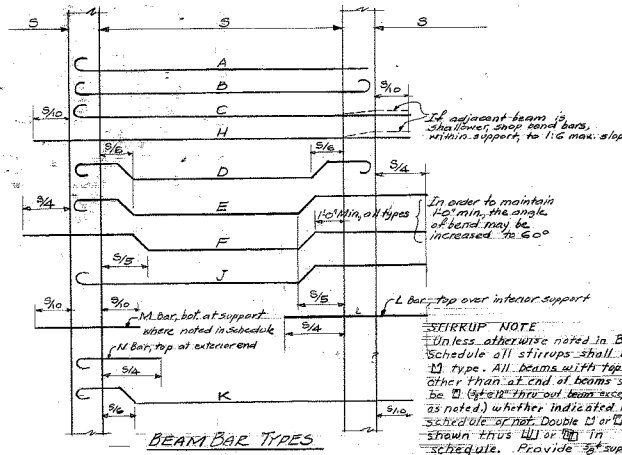 S S S
A
B
S/10
C
If adjacent beam is
shallower, shop bend bars,
within support, to 1:6 max. slop
S/10
H
S/6 S/6
D
S/4
E
S/4
1'-0" Min, all types
In order to maintain
1'-0" min., the angle
of bend may be
increased to 60°
F
S/5
J
S/5
S/10 S/10
M Bar, bot. at support
where noted in schedule
L Bar, top over interior support
L
S/4
N Bar, top at exterior end
S/4
K
S/6
S/10
BEAM BAR TYPES
STIRRUP NOTE
Unless otherwise noted in B
Schedule all stirrups shall
type. All beams with top
other than at end of beams s
be thru out beam exce
as noted.) whether indicated
schedule or not. Double or
shown thus or in
schedule. Provide sup